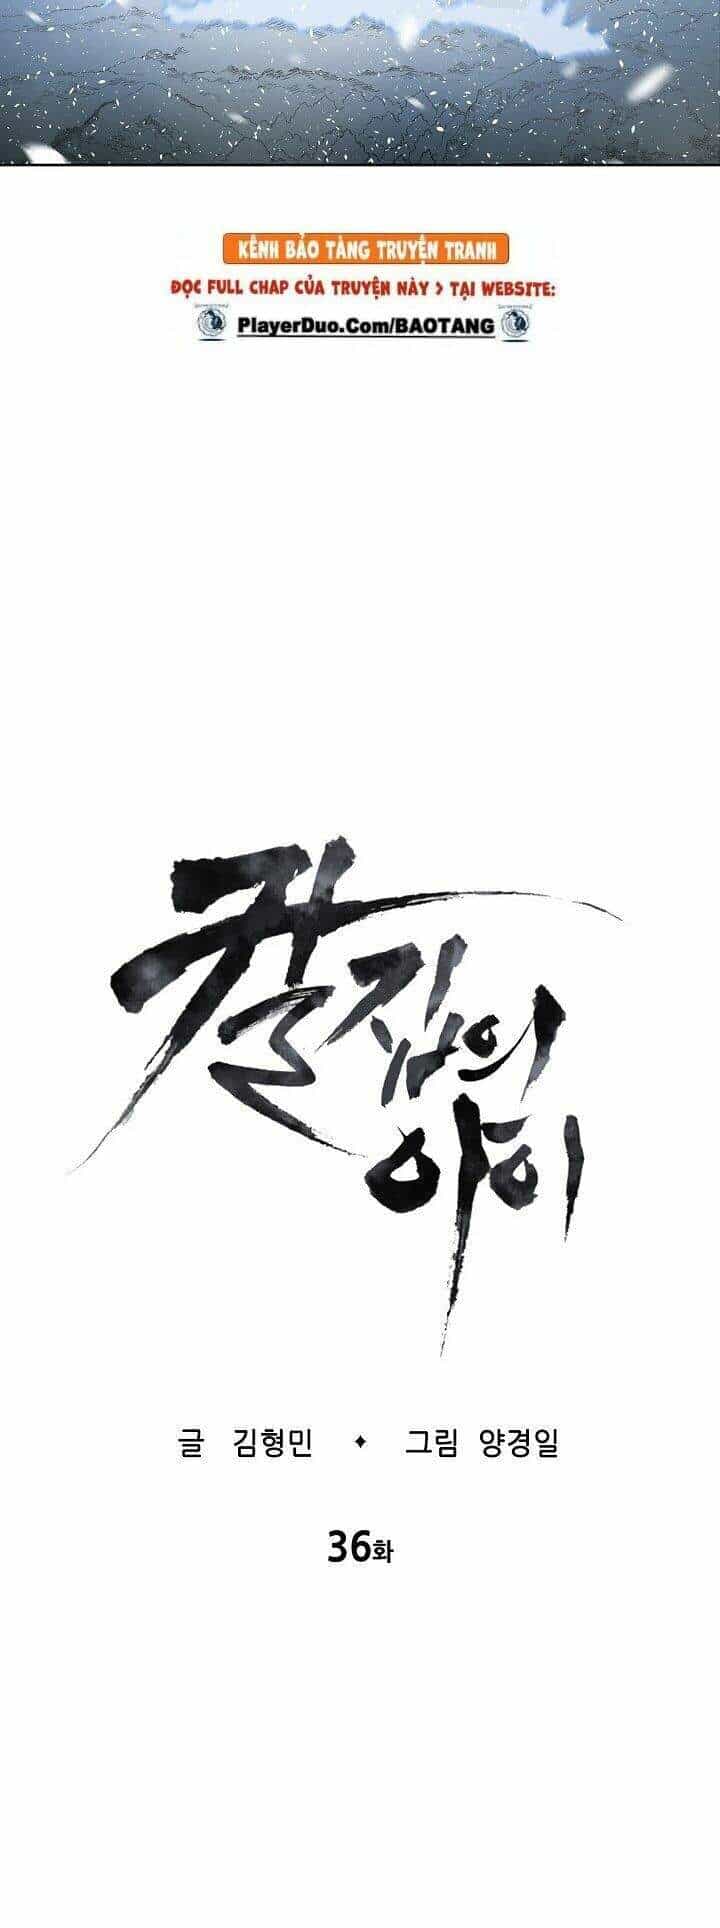 KÊNH BẢO TÀNG TRUYỆN TRANH
ĐỌC FULL CHAP CỦA TRUYỆN NÀY > TẠI WEBSITE:
PlayerDuo.Com/BAOTANG
칼집의
아이
글 김형민 ◆ 그림 양경일
36화